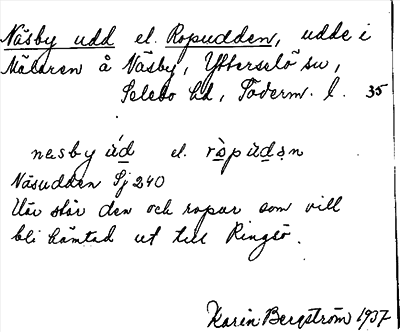 Näsby udd el. Ropudden, udde i
Mälaren å Näsby, Ytterselö sn,
Selebo hd, Söderm. l. 35
nesby úd el. ròpúdən
Näsudden Sj 240
Här står den och ropar som vill
bli hämtad ut till Ringsö.
Karin Bergström 1937